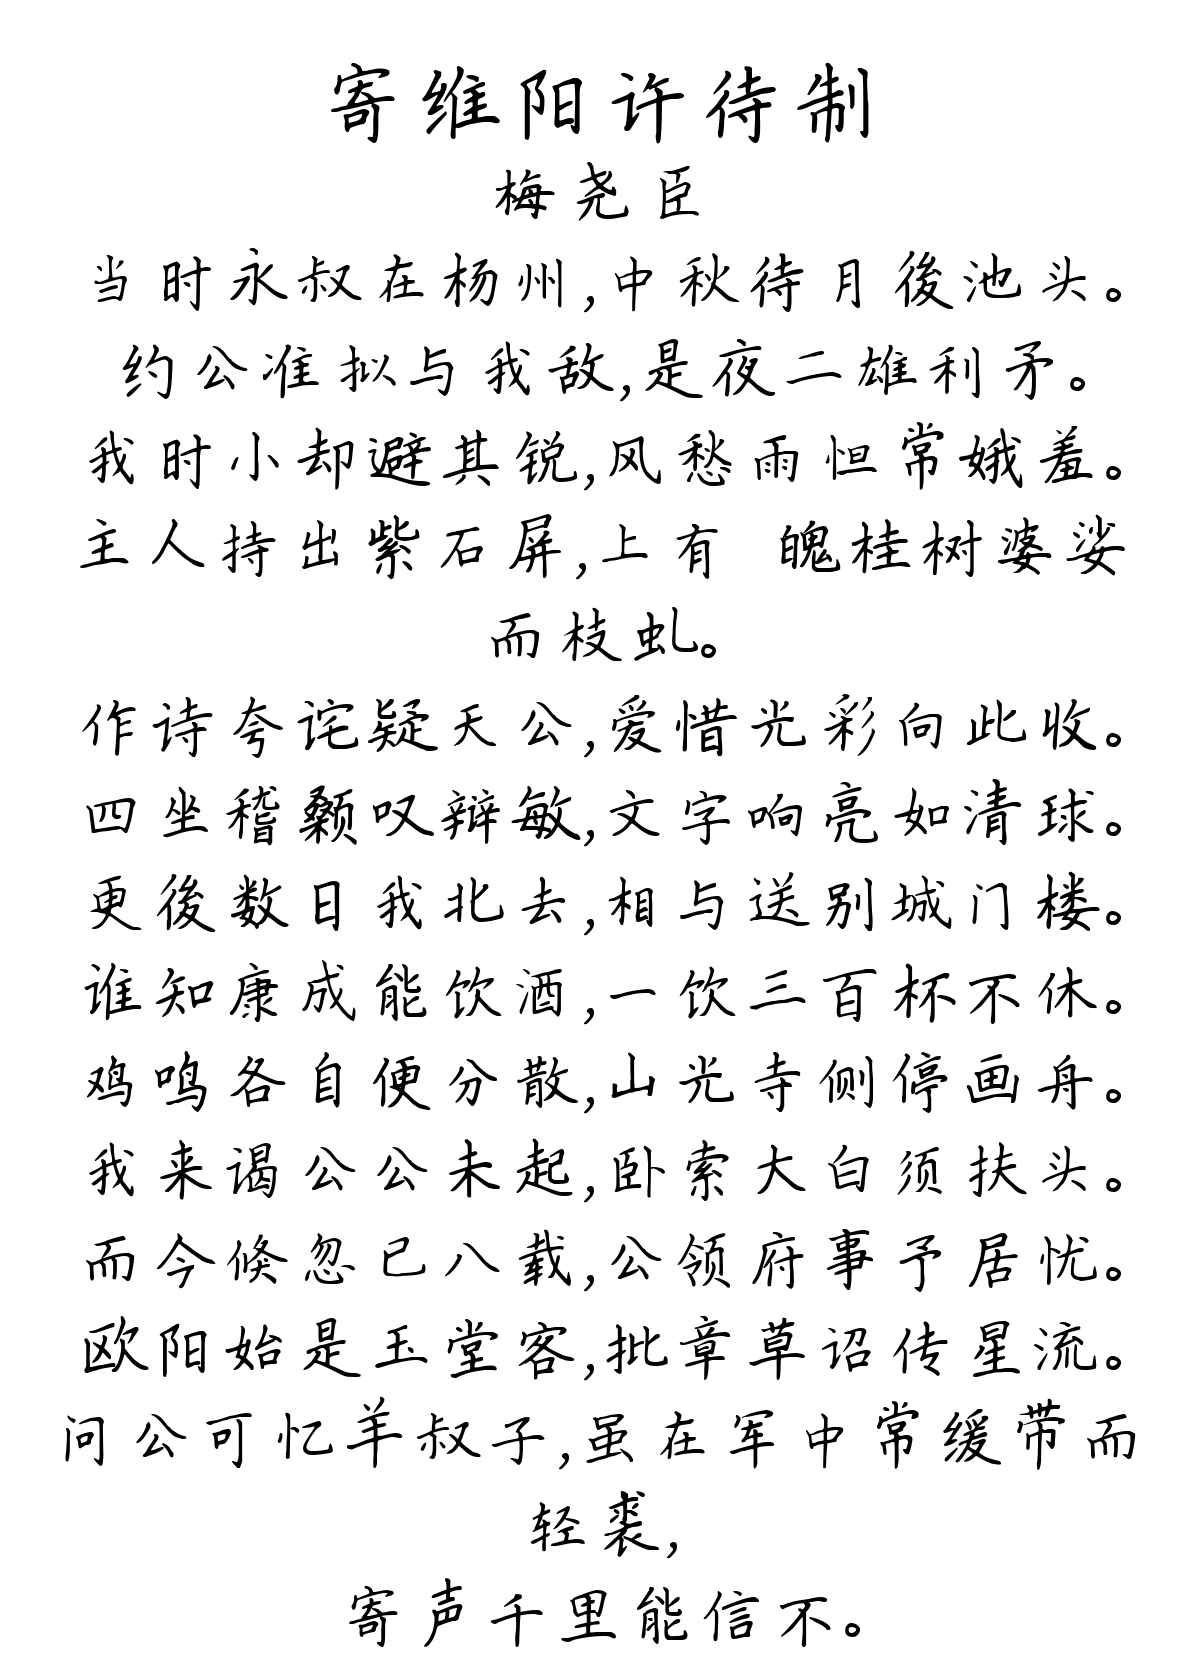 寄维阳许待制
梅尧臣
当时永叔在杨州,中秋待月後池头。
约公准拟与我敌,是夜二雄利矛。
我时小却避其锐,风愁雨怛常娥羞。
主人持出紫石屏,上有 魄桂树婆娑
而枝虬。
作诗夸诧疑天公,爱惜光彩向此收。
四坐稽颡叹辩敏,文字响亮如清球。
更後数日我北去,相与送别城门楼。
谁知康成能饮酒,一饮三百杯不休。
鸡鸣各自便分散,山光寺侧停画舟。
我来谒公公未起,卧索大白须扶头。
而今倏忽已八载,公领府事予居忧。
欧阳始是玉堂客,批章草诏传星流。
问公可忆羊叔子,虽在军中常缓带而
轻裘,
寄声千里能信不。